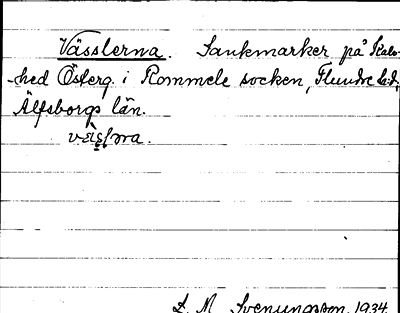 Vässlerna. Sankmarker på Stals-
hed Österg. i Rommele socken, Flundre hd,
Älfsborgs län.
S. M. Svenungsson. 1934.